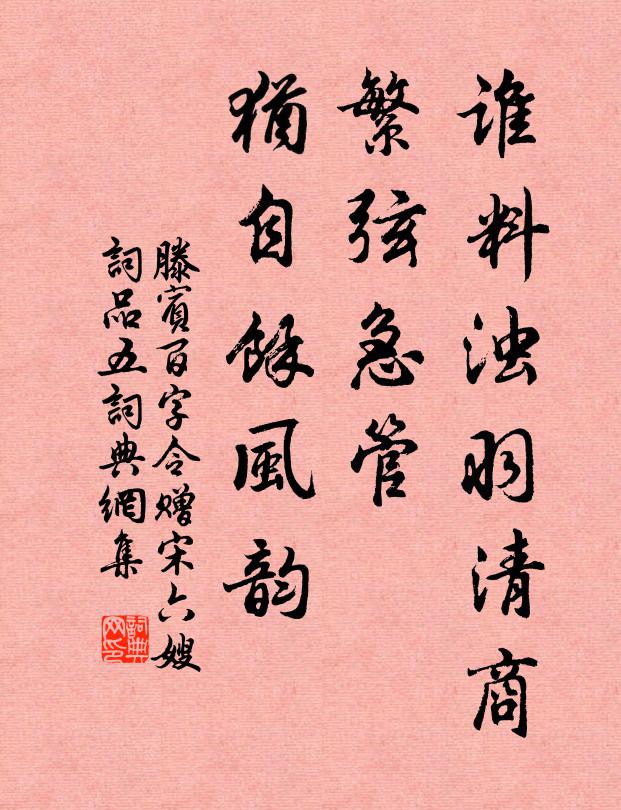 谁料浊羽清商
繁弦急管
猶自馀風韵
滕賓百字令赠宋六嫂
詞品五詞典網集
詞典网印